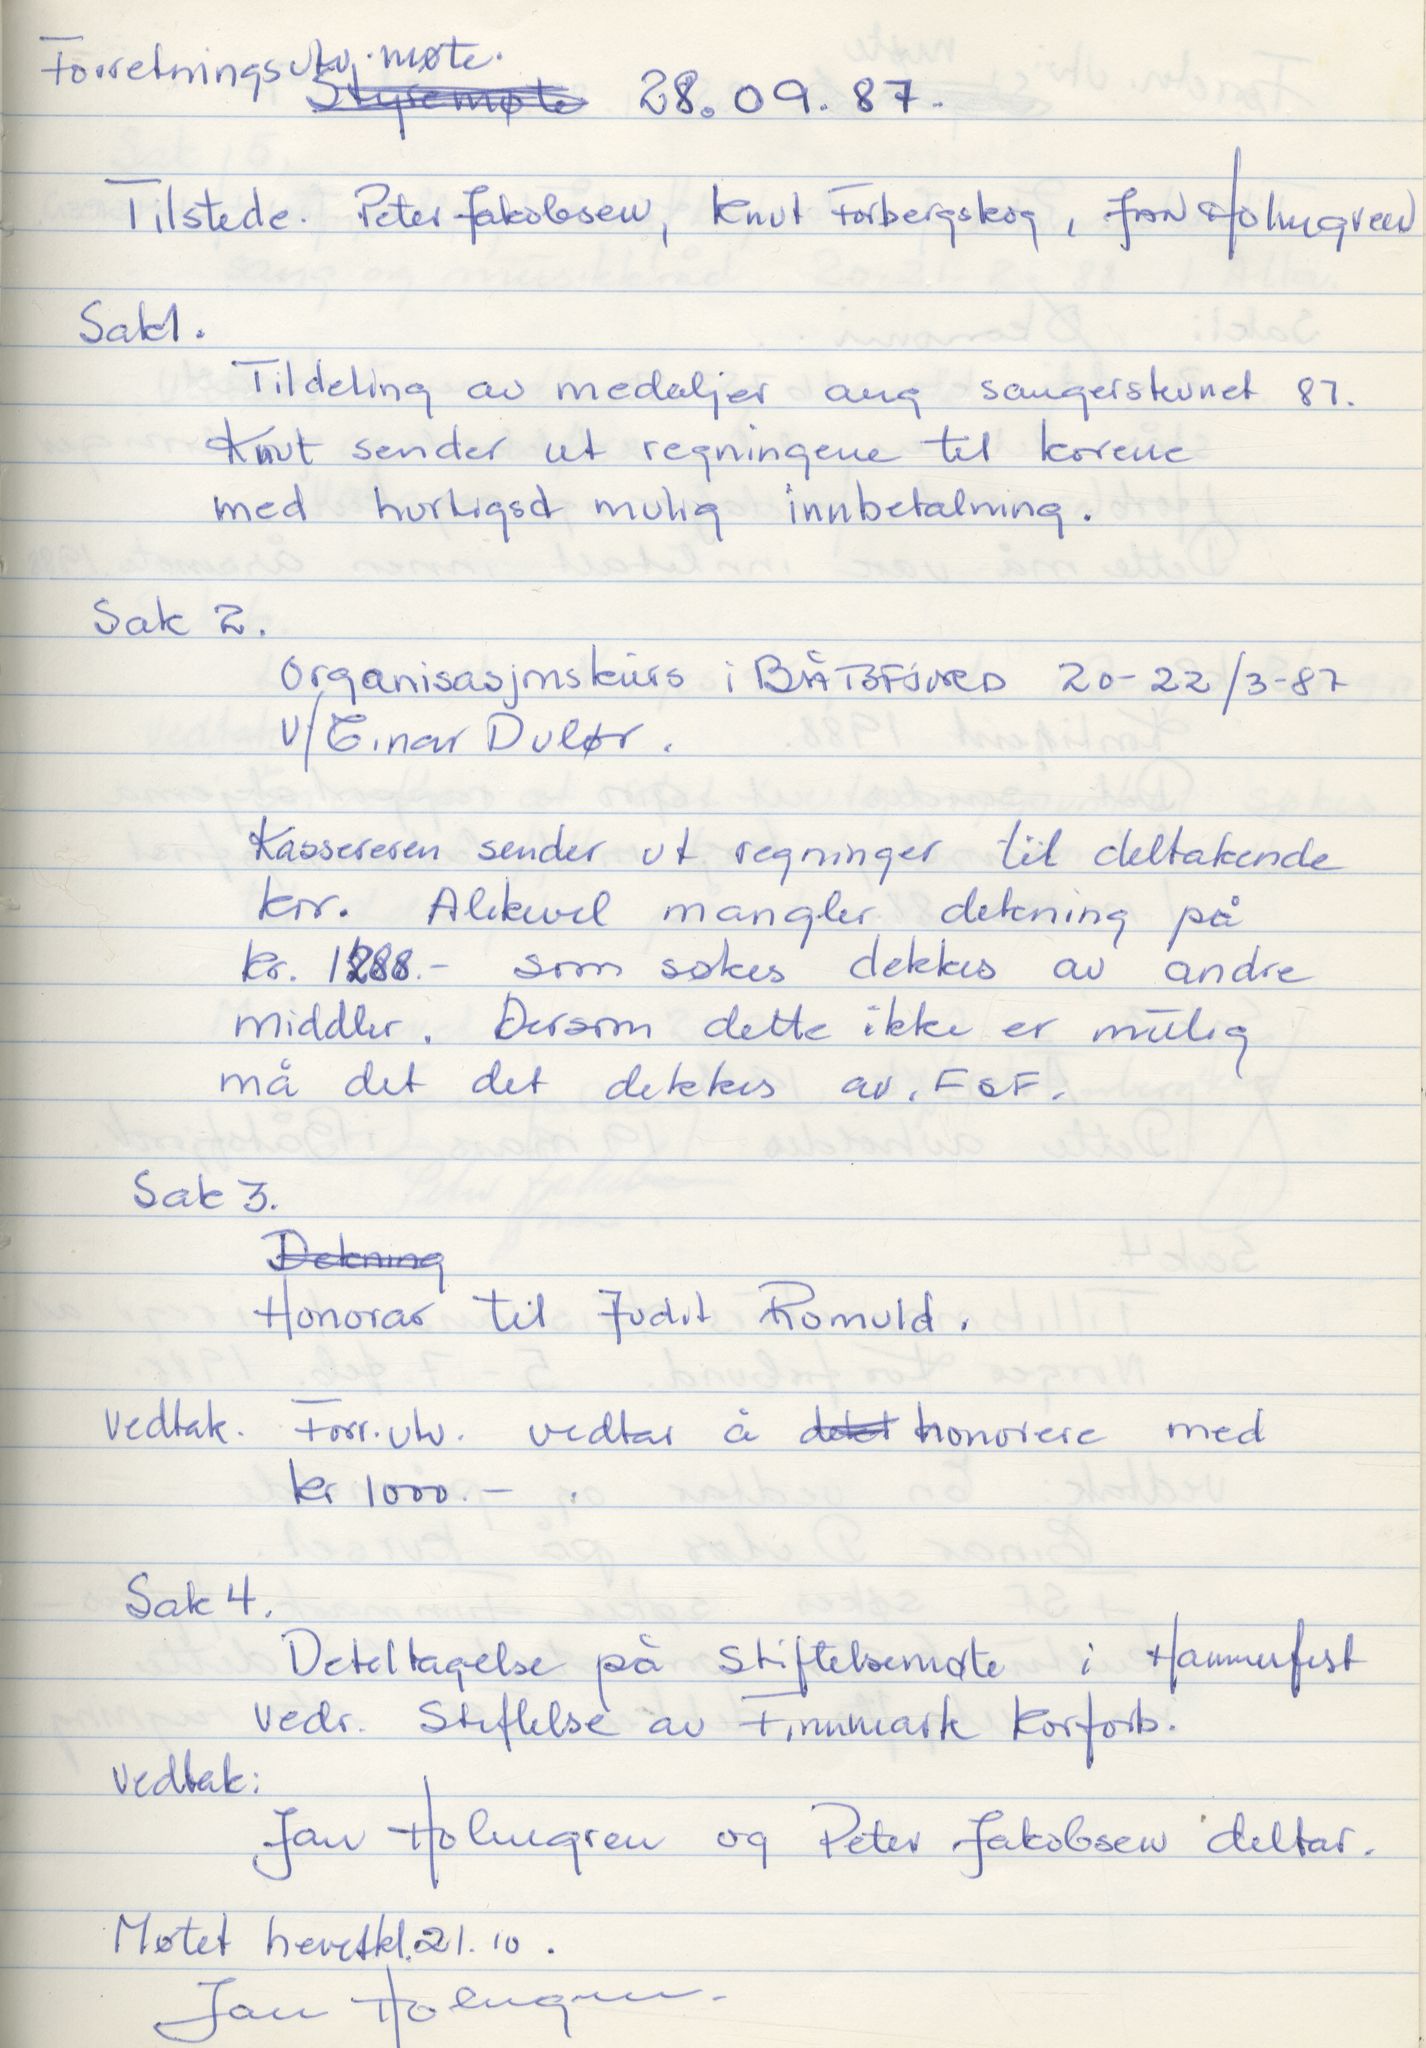 Forretningsutv. møte.
Styremøte 28.09.87.
Tilstede. Peter Jakobsen, Knut Forbergskog, Jan Holmgreen
Sak1.
Tildeling av medaljer ang sangerstevnet 87.
Knut sender ut regningene til korene
med hurtigst mulig innbetalning.
Sak 2.
Organisasjonskurs i BÅTSFJORD 20-22/3-87
v/ Einar Dulør.
Kassereren sender ut regninger til deltakende
kor. Alikevel mangler dekning på
kr. 1288.- som søkes dekkes av andre
midler. Dersom dette ikke er mulig
må det det dekkes av. FSF.
Sak 3.
Dekning
Honorar til Judit Romuld.
Vedtak. Forr.utv. vedtar å honorere med
kr 1000.-
Sak 4.
Deteltagelse på Stiftelsemøte i Hammerfest
vedr. Stiftelse av Finnmark Korforb.
Vedtak:
Jan Holmgren og Peter Jakobsen deltar.
Møtet hevet kl. 21.10.
Jan Holmgren.